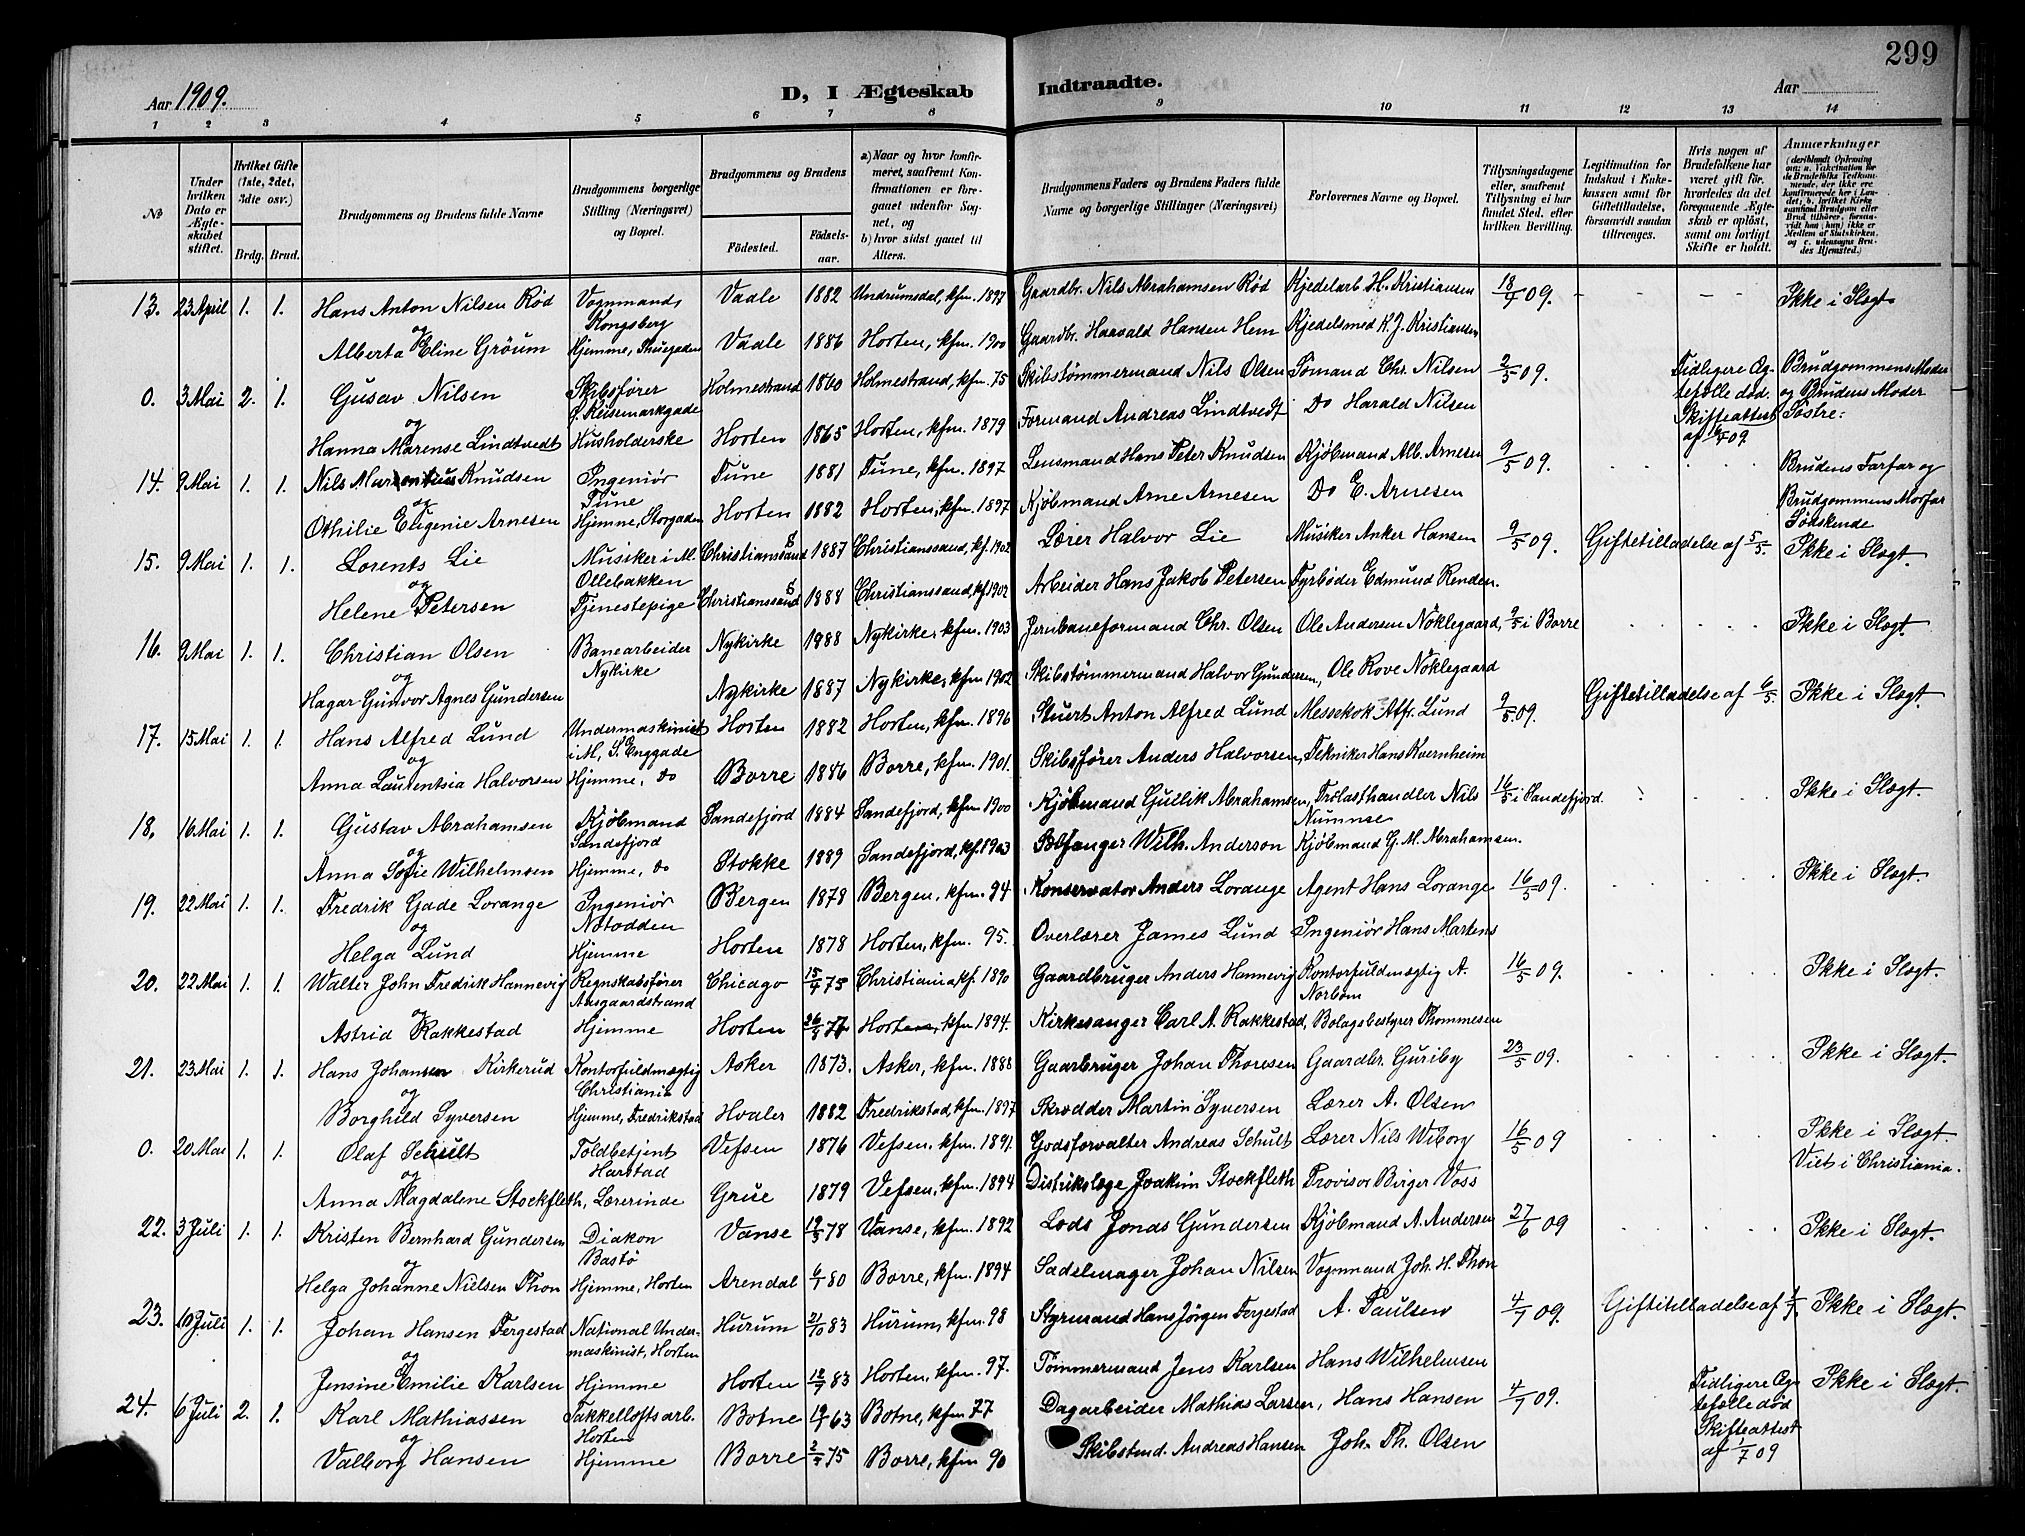 299
Aar 1909.
D, I Ægteskab Indtraadte.
Aar
1 2 3 4 5 6 7 8 9 10 11 12 13 14
№
Under hvilken Dato er Ægteskabet stiftet.
Hvilket Gifte (1ste, 2det, 3dte osv.)
Brdg. Brud.
Brudgommens og Brudens fulde Navne
Brudgommens borgerlige Stilling (Næringsvei) og Bopæl.
Brudgommens og Brudens
Fødested. Fødselsaar.
a) Naar og hvor konfirmeret, saafremt Konfirmationen er foregaaet udenfor Sognet, og
b) hvor sidst gaaet til Alters.
Brudgommens Faders og Brudens Faders fulde Navne og borgerlige Stillinger (Næringsvei)
Forlovernes Navne og Bopæl.
Tillysningsdagene eller, saafremt Tillysning ei har fundet Sted, efter hvilken Bevilling.
Legitimation for Indskud i Enkekassen samt for Giftetilladelse, forsaavidt saadan tiltrænges.
Hvis nogen af Brudefolkene har været gift før, hvorledes da det foregaaende Ægteskab er opløst, samt om lovligt Skifte er holdt.
Anmærkninger
13. 23 April 1. 1. Hans Anton Nilsen Rød Vognmand, Kongsberg Vaale 1882 Undrumsdal, kfm. 1897 Gaardbr. Nils Abrahamsen Rød Kjedelarb H. Kristiansen 18/4 09. - - - - Ikke i Slægt
og
Alberta Eline Grøum Hjemme, Thuegaden Vaale 1886 Horten, kfm. 1900 Gaardbr. Harald Hansen Hem Kjedelsmed K. J. Kristiansen
0. 3 Mai 2. 1. Gusav Nilsen Skibsfører Holmestrand 1860 Holmestrand, kfm. 75 Skibstømmermand Nils Olsen Sømand Chr. Nilsen 2/5 09. Tidligere Ægtefølle død. Skifteattest af 09. Brudgommens Moder og Brudens Moder Søstre:
og
Hanna Marense Lindtvedt Husholderske Horten 1865 Horten, kfm. 1879 Formand Andreas Lindtvedt Do Harald Nilsen
14. 9 Mai 1. 1. Nils Knudsen Ingeniør Tune Tune 1881 Tune, kfm. 1897 Lensmand Hans Peter Knudsen Kjøbmand Alb. Arnesen 9/5 09. Brudens Farfar og Brudgommens Morfar Søskende
og
Othilie Eugenie Arnesen Hjemme, Storgaden Horten 1882 Horten, kfm. 1897 Kjøbmand Arne Arnesen Do E. Arnesen
15. 9 Mai 1. 1. Lorents Lie Musiker i M. Ollebakken Christianssand S 1887 Christianssand, kf. 1902 Lærer Halvor Lie Musiker Anker Hansen 9/5 09. Giftetilladelse af 5/5. Ikke i Slægt.
og
Helene Petersen Tjenestepige Christianssand S 1888 Christianssand, kf. 1902 Arbeider Hans Jakob Petersen Fyrbøder Edmund Renden.
16. 9 Mai 1. 1. Christian Olsen Banearbeider Nykirke Nykirke 1888 Nykirke, kfm. 1903 Jernbaneformand Chr. Olsen Ole Andersen Nøklegaard, 9/5 i Borre Ikke i Slægt.
og
Hagar Gunvor Agnes Gundersen Nykirke 1887 Nykirke, kfm. 1902 Skibstømmermand Halvor Gundersen, Ole Rove Nøklegaard
17. 15 Mai 1. 1. Hans Alfred Lund Undermaskinist i M, S. Enggade Horten 1882 Horten, kfm. 1896 Stuert Anton Alfred Lund Messekok Alfr. Lund 9/5 09. Giftetilladelse af 6/5. Ikke i Slægt.
og
Anna Laurentsia Halvorsen Hjemme, do Borre 1886 Borre, kfm. 1901. Skibsfører Anders Halvorsen, Tekniker Hans Kvernheim
18. 16 Mai 1. 1. Gustav Abrahamsen Kjøbmand Sandefjord Sandefjord 1884 Sandefjord, kfm 1900 Kjøbmand Gullik Abrahamsen, Trælasthandler Nils Nummse 16/5 i Sandefjord. Ikke i Slægt.
og
Anna Sofie Wilhelmsen Hjemme, do Stokke 1889 Sandefjord, kf. 1903 Sælfanger Wilh. Anderson Kjøbmand G. M. Abrahamsen.
19. 22 Mai 1. 1. Fredrik Gade Lorange Ingeniør Notodden Bergen 1878 Bergen, kfm. 94 Konservator Anders Lorange Agent Hans Lorange 16/5 09. Ikke i Slægt.
og
Helga Lund Hjemme Horten 1878 Horten, kfm. 95. Overlærer James Lund Ingeniør Hans Martens
20. 22 Mai 1. 1. Walter John Fredrik Hannevig Regnskabsfører Aasgaardstrand Chicago 15/4 75 Christiania, kf. 1890 Gaardbruger Anders Hannevig Kontorfuldmægtig A. Norbom 16/5 09. Ikke i Slægt.
og
Astrid Rakkestad Hjemme Horten 26/8 77 Horten, kfm 1894. Kirkesanger Carl A. Rakkestad, Bolagsbestyrer Thommesen
21. 23 Mai 1. 1. Hans Johansen Kirkerud Kontorfuldmægtig Christiania Asker 1873. Asker, kfm. 1888 Gaarbruger Johan Thoresen Gaardbr. Guriby 23/5 09. Ikke i Slægt.
og
Borghild Syversen Hjemme, Fredrikstad Hvaler 1882 Fredrikstad, kfm. 1897 Skrædder Martin Syversen Lærer A. Olsen
0. 20 Mai 1. 1. Olaf Schult Toldbetjent Harstad Vefsen 1876 Vefsen, kfm. 1891. Godsforvalter Andreas Schult Lærer Nils Wiborg 16/5 09 Ikke i Slægt. Viet i Christiania.
og
Anna Magdalene Stockfleth, Lærerinde Grue 1879 Vefsen, kfm. 1894 Distrikslæge Joakim Stockfleth Provisor Birger Voss
22. 3 Juli 1. 1. Kristen Bernhard Gundersen Diakon Bastø Vanse 19/5 78 Vanse, kfm. 1892 Lods Jonas Gundersen Kjøbmand A. Andersen 27/6 09 Ikke i Slægt.
og
Helga Johanne Nielsen Thon Hjemme, Horten Arendal 6/1 80 Borre, kfm. 1894 Sadelmager Johan Nilsen Vognmand Joh. H. Thon
23. 10 Juli 1. 1. Johan Hansen Fergestad National Undermaskinist, Horten Hurum 21/10 83 Hurum, kfm. 98 Styrmand Hans Jörgen Fergestad A. Paulsen 4/7 09. Giftetilladelse af 1/7. Ikke i Slægt.
og
Jensine Emilie Karlsen Hjemme Horten 12/7 83 Horten, kfm. 97. Tømmermand Jens Karlsen Hans Wilhelmsen
24. 6 Juli 2. 1. Karl Mathiassen Takkelloftsarb. Horten Botne 63 Botne, kfm 77 Dagarbeider Mathias Larsen, Hans Hansen 4/7 09. Tidligere Ægtefælle død Skifteattest af 1/7 09 Ikke i Slægt.
og
Valborg Hansen Hjemme Borre 75 Borre, kfm 90 Skibstmd. Andreas Hansen Joh. Th. Olsen